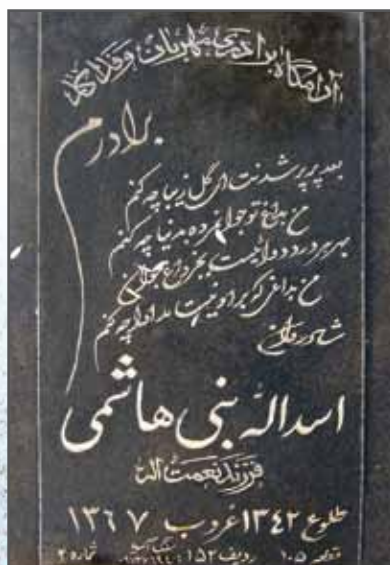 آرامگاه برادری مهربان و فداکار
برادرم
بعد پرپر شدنت ای گل زیبا چه کنم
من بداغ تو جوانمرده بدنیا چه کنم
بهر هر درد دوائیست بجز داغ جوان
من بداغی که بر او نیست مداوا چه کنم
شادروان
اسداله بنی هاشمی
فرزند نعمت اله
طلوع ۱۳۴۲ غروب ۱۳۶۷
قطعه ۱۰۵ ردیف ۱۵۲ شماره ۲